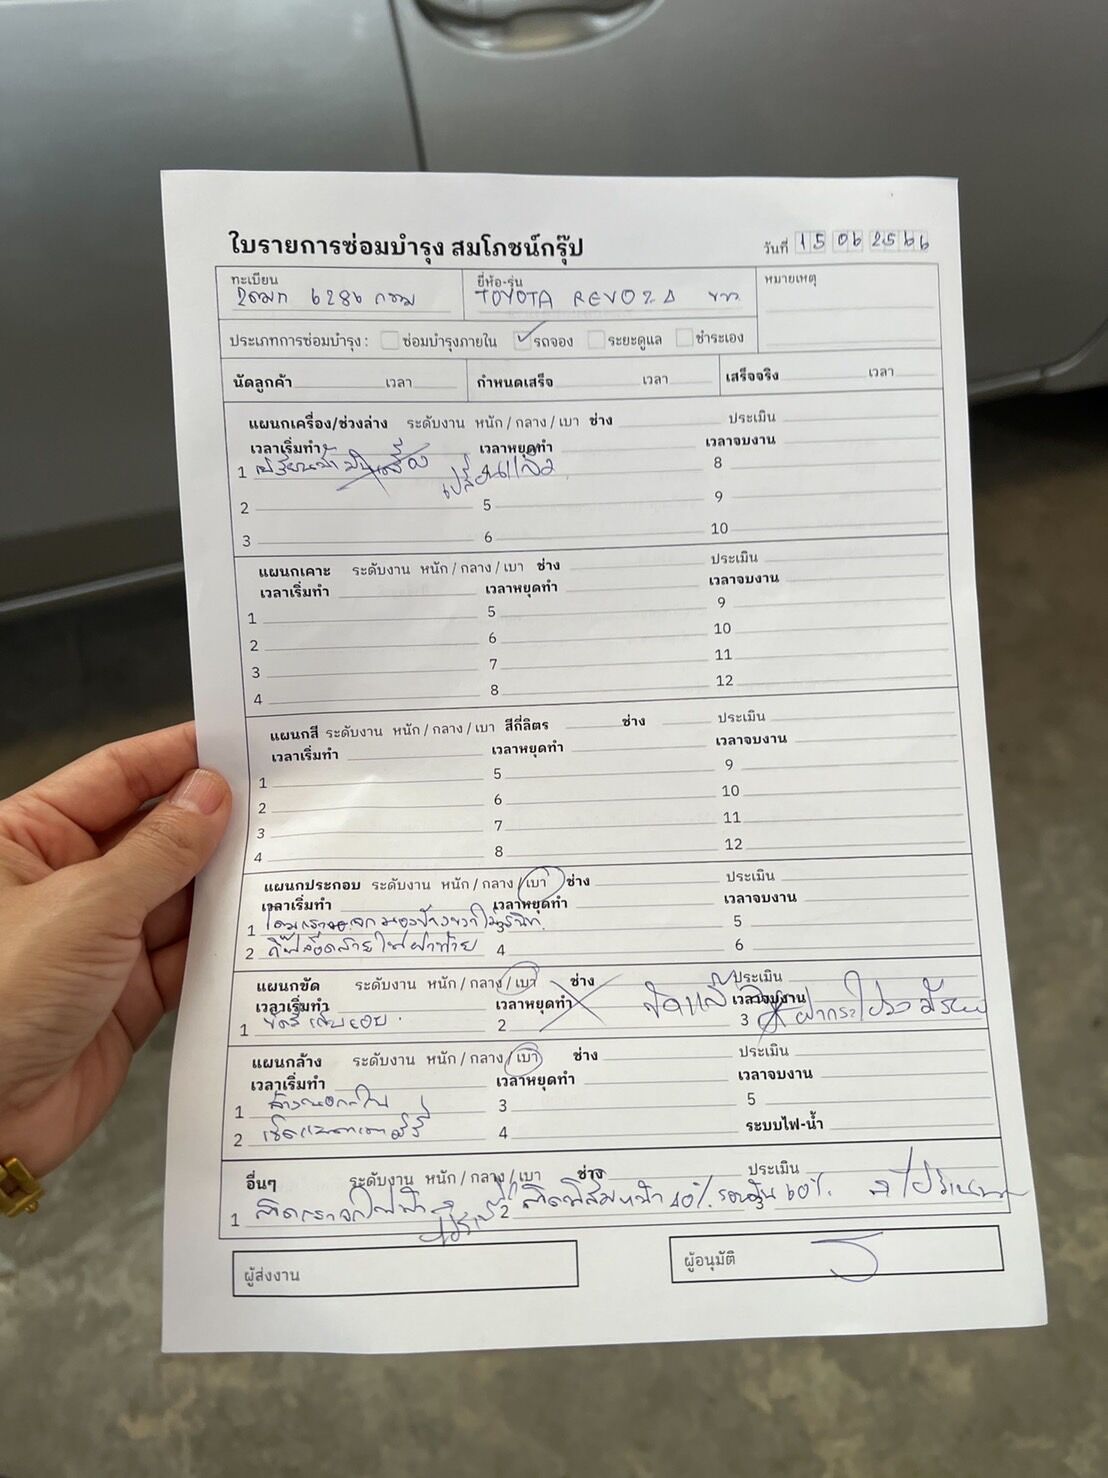 ใบรายการซ่อมบำรุง สมโภชน์กรุ๊ป
วันที่ 15 06 2566
ทะเบียน
ยี่ห้อ-รุ่น
หมายเหตุ
6286 กทม
TOYOTA REVO
ประเภทการซ่อมบำรุง : ซ่อมบำรุงภายใน ✓ รถจอง ระยะดูแล ชำระเอง
นัดลูกค้า เวลา กำหนดเสร็จ เวลา เสร็จจริง เวลา
แผนกเครื่อง/ช่วงล่าง ระดับงาน หนัก / กลาง / เบา ช่าง ประเมิน
เวลาเริ่มทำ เวลาหยุดทำ เวลาจบงาน
1 เปลี่ยนน้ำมันเครื่อง เปลี่ยนแล้ว 4 8
2 5 9
3 6 10
แผนกเคาะ ระดับงาน หนัก / กลาง / เบา ช่าง ประเมิน
เวลาเริ่มทำ เวลาหยุดทำ เวลาจบงาน
1 5 9
2 6 10
3 7 11
4 8 12
แผนกสี ระดับงาน หนัก / กลาง / เบา สีกี่ลิตร ช่าง ประเมิน
เวลาเริ่มทำ เวลาหยุดทำ เวลาจบงาน
1 5 9
2 6 10
3 7 11
4 8 12
แผนกประกอบ ระดับงาน หนัก / กลาง / เบา ช่าง ประเมิน
เวลาเริ่มทำ เวลาหยุดทำ เวลาจบงาน
1 3 5
2 4 6
แผนกขัด ระดับงาน หนัก / กลาง / เบา ช่าง ประเมิน
เวลาเริ่มทำ เวลาหยุดทำ เวลาจบงาน
1 ขัดสี 2 ขัดแล้ว 3 ฝากระโปรง
แผนกล้าง ระดับงาน หนัก / กลาง / เบา ช่าง ประเมิน
เวลาเริ่มทำ เวลาหยุดทำ เวลาจบงาน
1 ล้างนอก-ใน 3 5
2 4 ระบบไฟ-น้ำ
อื่นๆ ระดับงาน หนัก / กลาง / เบา ช่าง ประเมิน
1 2 ติดฟิล์มหน้า 40% รอบคัน 60% 3
ผู้ส่งงาน
ผู้อนุมัติ